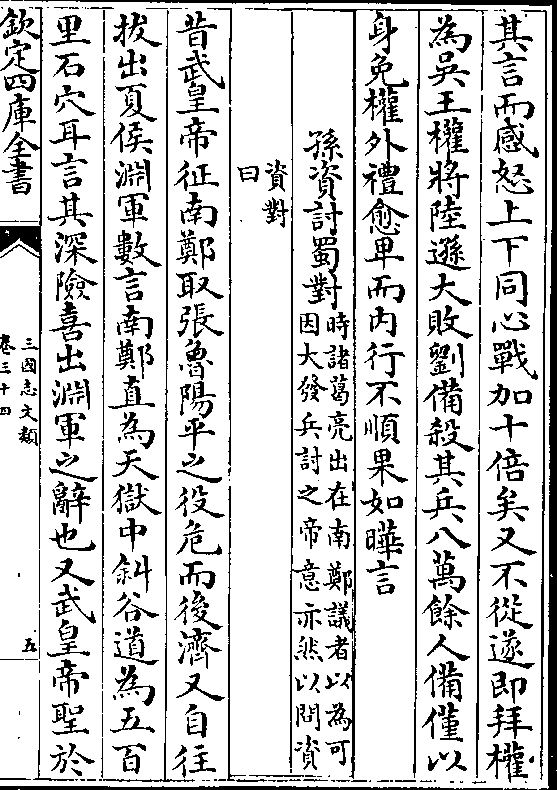 其言而感怒上下同心戰加十倍矣又不從遂即拜權
為吳王權將陸遜大敗劉備殺其兵八萬餘人備僅以
身免權外禮愈卑而内行不順果如曄言
孫資討蜀對時諸葛亮出在南鄭議者以為可
因大發兵討之帝意亦然以問資
資對
曰
昔武皇帝征南鄭取張魯陽平之役危而後濟又自往
拔出夏侯淵軍數言南鄭直為天獄中斜谷道為五百
里石穴耳言其深險喜出淵軍之辭也又武皇帝聖於
欽定四庫全書
三國志文類
卷三十四
五